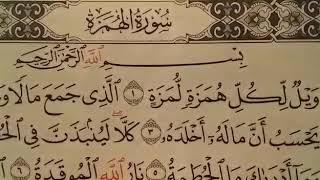 سُورَةُ الهُمَزَةِ
بِسْمِ اللَّهِ الرَّحْمَٰنِ الرَّحِيمِ
وَيْلٌ لِّكُلِّ هُمَزَةٍ لُّمَزَةٍ ١ الَّذِي جَمَعَ مَالًا وَ
يَحْسَبُ أَنَّ مَالَهُ أَخْلَدَهُ ٣ كَلَّا لَيُنۢبَذَنَّ فِي الْحُ
الْحُطَمَةُ ٥ نَارُ اللَّهِ الْمُوقَدَةُ ٦